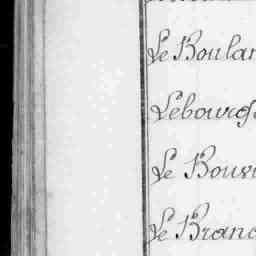 Le Boulan
Lebourgs
Le Bouv
Le Branc